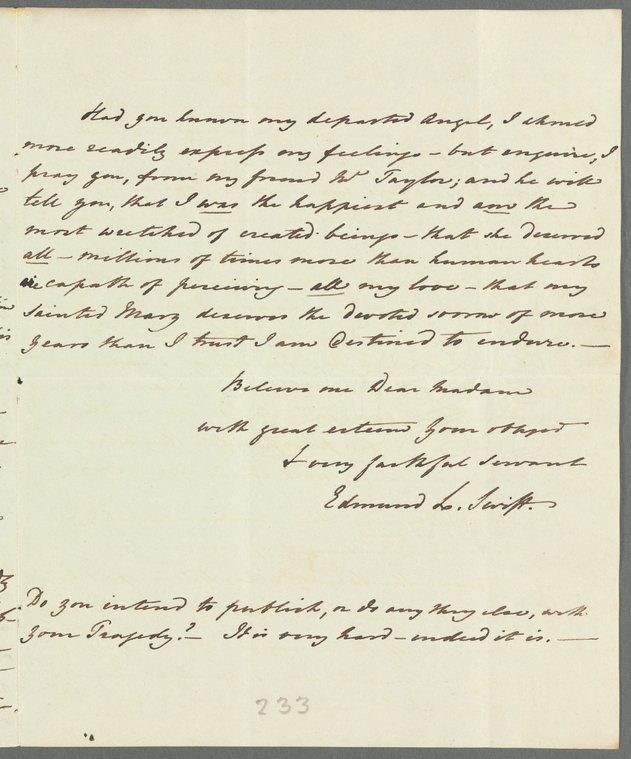 Had you known my departed Angel, I should
more readily express my feelings – but enquire, I
pray you, from my friend Mr Taylor; and he will
tell you, that I was the happiest and am the
most wretched of created beings – that she deserved
all – millions of times more than human hearts
are capable of perceiving – all my love – that my
Sainted Mary deserves the devoted sorrow of more
years than I trust I am destined to endure. —
Believe me Dear Madam
with great esteem your obliged
& very faithful Servant
Edmund L. Swift.
Do you intend to publish, or do any thing else, with
your Tragedy? – It is very hard – indeed it is. —
233